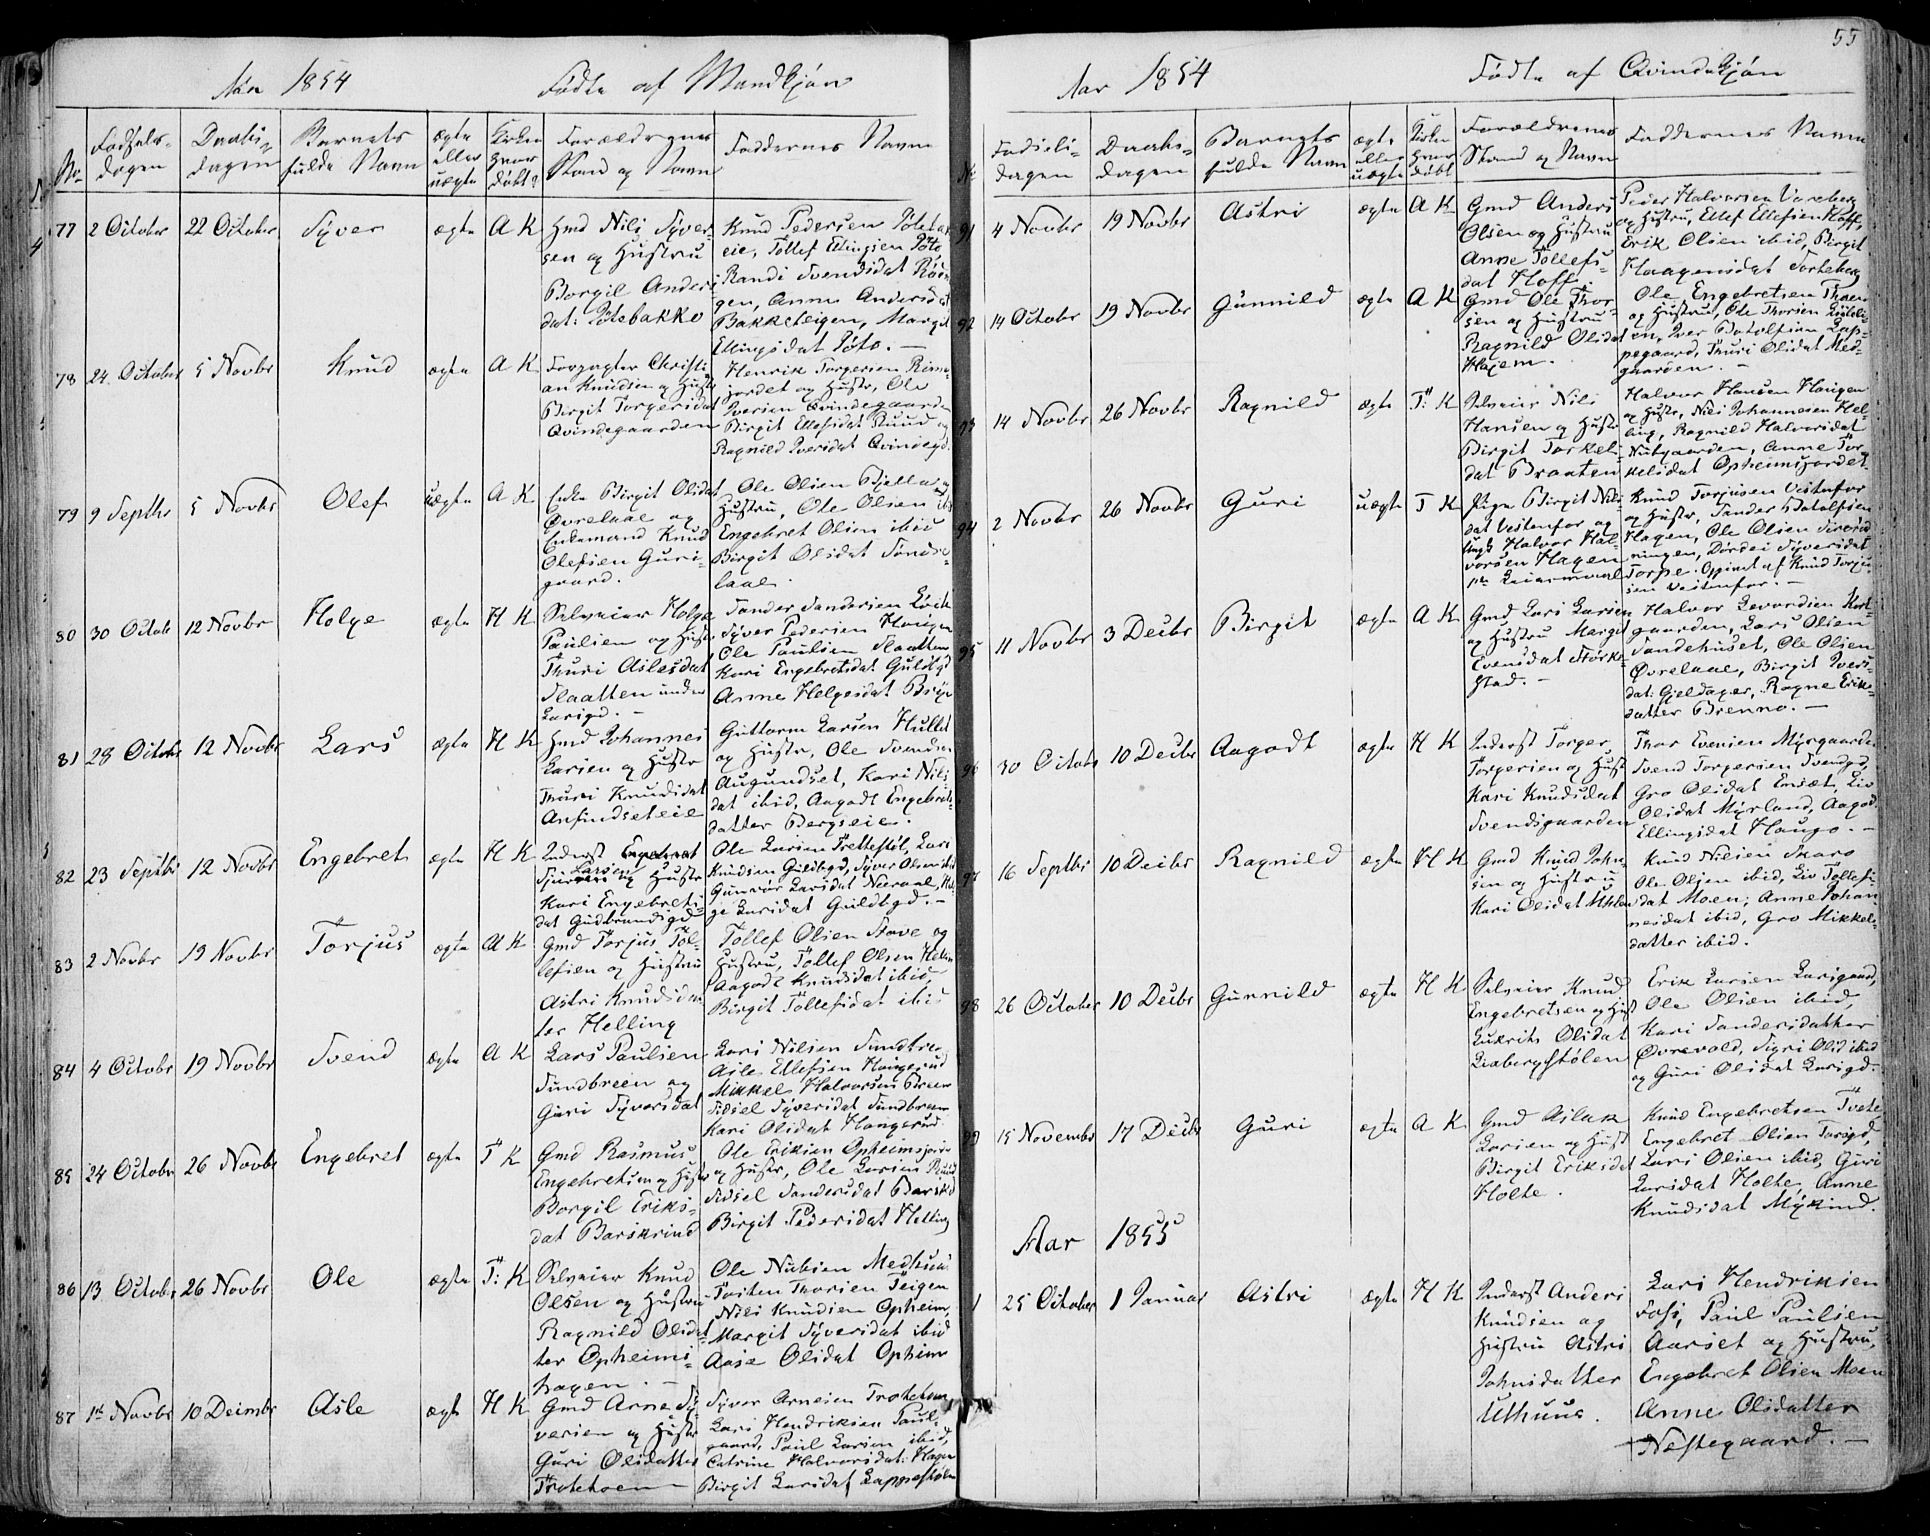 Aar 1854 Fødte af Mandkjøn
No. Fødsels-dagen Daabs-dagen Barnets fulde Navn ægte eller uægte Kirken hvor døbt? Forældrenes Stand og Navn Faddernes Navn
77 2 October 22 October Syver ægte A K
Gmd Nils Syver-
sen og Hustru
Borgil Anders
dat:
Knud Pedersen
eie, Tollef Ellingsen
Randi Svendsdat
gen, Anne Andersdat
Bakketeigen, Margit
Ellingsdat
78 24 October 5 Novbr Knud ægte A K
Forpagter Christi
an Knudsen og Hustr
Birgit Torgersdat
Qvindegaarden
Henrik Torgersen
jordet og Hustr, Ole
Iversen Qvindegaarden
Birgit Ellefsdat Ruud
Ragnild Iversdat Qvindegd.
79 9 Septbr 5 Novbr Olef uægte A K
Enke Birgit Olsdat
Øvrelaal og
Enkemand Knud
Olefsen Guri-
gaard.
Ole Olsen Bjella og
Hustru, Ole Olsen ibid
Engebret Olsen ibid
Birgit Olsdat
laal.
80 30 Octobr 12 Novbr Holge ægte H K
Selveier Holge
Paulsen og Hustr
Thuri Aslesdat
Slaatten under
Larsgd. -
Sander Sandersen
Syver Pedersen Haugen
Ole Paulsen Slaatten
Kari Engebretsdat Guldbgd
Anne Helgesdat
81 28 October 12 Novbr Lars ægte H K
Gmd Johannes
Larsen og Hustr
Thuri Knudsdat
Anfindseteie
Guttorm Larsen
og Hustr, Ole Svendsen
Augundset, Kari Nils
dat ibid, Aagodt Engebrets-
datter Bergseie.
82 23 Septbr 12 Novbr Engebret ægte H K
Inderst
Larsen og Hustr
Kari Engebrets-
dat Gudbrandsgd
Ole Larsen Trettestøl, Lars
Knudsen Guldbgd, Syver Olsen ibid
Gunvor Larsdat
ge Larsdat Guldbgd. -
83 2 Novbr 19 Novbr Torjus ægte A K
Gmd Torjus Tol-
lefsen og Hustru
Astri Knudsdat
ter Helling
Tollef Olsen Stave og
Hustru, Tollef Olsen
Aagodt Knudsdat ibid
Birgit Tollefsdat ibid
84 4 Octobr 19 Novbr Svend ægte A K
Lars Paulsen
Sundbreen og
Guri Syversdat
Lars Nilsen Sundbreen
Asle Ellefsen Haugerud
Mikkel Halvorsen
Sidsel Syversdat Sundbreen
Kari Olsdat Haugerud
85 24 Octobr 26 Novbr Engebret ægte T K
Gmd Rasmus
Engebretsen og Hustr
Borgil Eriks-
dat Barskrind
Ole Eriksen Opheimsjorde
og Hustr, Ole Larsen Ruud
Sidsel Sandersdat
Birgit Pedersdat Helling
86 13 Octobr 26 Novbr Ole ægte T: K
Selveier Knud
Olsen og Hustru
Ragnild Olsdat
ter Opheims-
hagen. -
Ole Nubsen Medhuus
Tosten Thorsen Teigen
Nils Knudsen Opheim,
Margit Syversdat ibid
Aase Olsdat Opheim
87 1st Novbr 10 Decmbr Asle ægt H K
Gmd Arne Sy
versen og Hustr
Guri Olsdatter
Syver Arnesen
Lars Hendriksen Paul-
gaard, Paul Larsen ibid,
Catrine Halvorsdat: Hagen
Birgit Larsdat

55
Aar 1854 Fødte af Qvindekjøn
No Fødsels-dagen Daabs-dagen Barnets fulde Navn ægte eller uægte Kirken hvor døbt Forældrenes Stand og Navn Faddernes Navn
91 4 Novbr 19 Novbr Astri ægte A K
Gmd Anders
Olsen og Hustru
Anne Tollefs-
dat Hoff
Peder Halvorsen
og Hustru, Ellef Ellefsen Hoff,
Erik Olsen ibid, Birgit
Haagensdat Torkeberg
92 14 Octobr 19 Novbr Gunnild ægte A K
Gmd Ole Thor
sen og Hustru
Ragnild Olsdat
Hajem -
Ole Engebretsen
og Hustru, Ole Thorsen
en, Iver Botolfsen
pegaard, Thuri Olsdat Med-
gaarden. -
93 14 Novbr 26 Novbr Ragnild ægte T: K
Selveier Nils
Hansen og Hustr
Birgit Torkels-
dat Braaten
Halvor Hansen Haugen
og Hustr, Nils Johannesen Hel-
ling, Ragnild Halvorsdat
Nubgaarden, Anne Tor
kelsdat Opheimsjordet.
94 2 Novbr 26 Novbr Guri uægte T K
Pige Birgit Nils
dat Vestenfor og
Ungk Halvor Hal-
vorsen Hagen
1ste Leiermaal
Knud Torjusen Vestenfor
og Hustru, Sander Botolfsen
Hagen, Ole Olsen
ningen, Dordei Syversdat
Torpe. Opgivet af Knud Torju
sen Vestenfor. -
95 4 Novbr 3 Decbr Birgit ægte A K
Gmd Lars Larsen
og Hustru Margit
Evensdat Størke-
stad. -
Halvor Levordsen Kort
gaarden, Lars Olsen
Sandehuset, Ole Olsen
Øvrelaal, Birgit Ivers-
dat: Gjeldager, Ragne Eriks-
datter Brenno. -
96 30 Octobr 10 Decbr Aagodt ægte H K
Inderst Torger
Torgersen og Hust
Kari Knudsdat
Svendsgaarden
Thor Evensen Myrgaarden
Svend Torgersen Svendsgd,
Gro Olsdat Enset, Liv
Olsdat Myrland, Aagodt
Ellingsdat Haugo. -
97 16 Septbr 10 Decbr Ragnild ægte H K
Gmd Knud John-
sen og Hustru
Kari Olsdat
Knud Nilsen Skaro
Ole Olsen ibid, Liv Tollefs-
dat Moen, Anne Johan-
nesdat ibid, Gro Mikkels-
datter ibid.
98 26 October 10 Decbr Gunnild ægte H K
Selveier Knud
Engebretsen og Hust
Olsdat
Liabergstølen
Erik Larsen Larsgaard,
Ole Olsen ibid,
Kari Sandersdatter
Øvrevold, Sigri Olsd ibid
og Guri Olsdat Larsgd. -
99 15 Novembr 17 Decbr Guri ægte A K
Gmd Aslak
Larsen og Hust
Birgit Eriksdat
Holte.
Knud Engebretsen Tvete
Engebret Olsen
Lars Olsen ibid, Guri
Larsdat Holte, Anne
Knudsdat Myking.
Aar 1855
1 25 October 1 Januar Astri ægte H K
Inderst Anders
Knudsen og
Hustru Astri
Johnsdatter
Uthuus.
Lars Hendriksen
Foss, Paul Paulsen
Aarset og Hustru,
Engebret Olsen Moen
Anne Olsdatter
Nestegaard. -